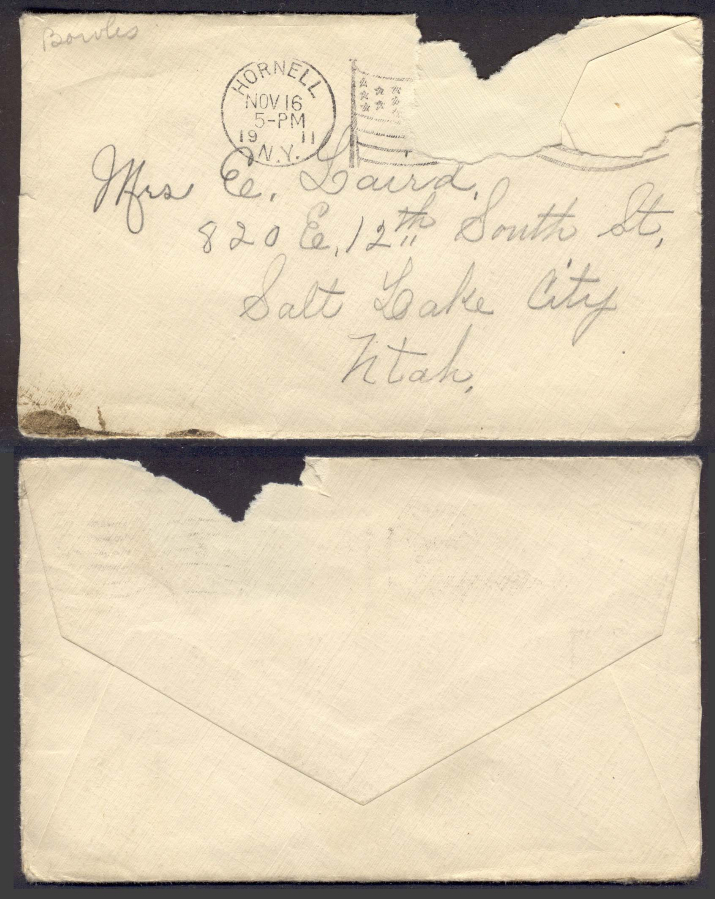 Bowles
HORNELL
NOV 16
5-PM
19 11
N.Y.
Mrs E. Laird,
820 E, 12th South St,
Salt Lake City
Utah.